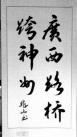 廣西路桥
跨神州